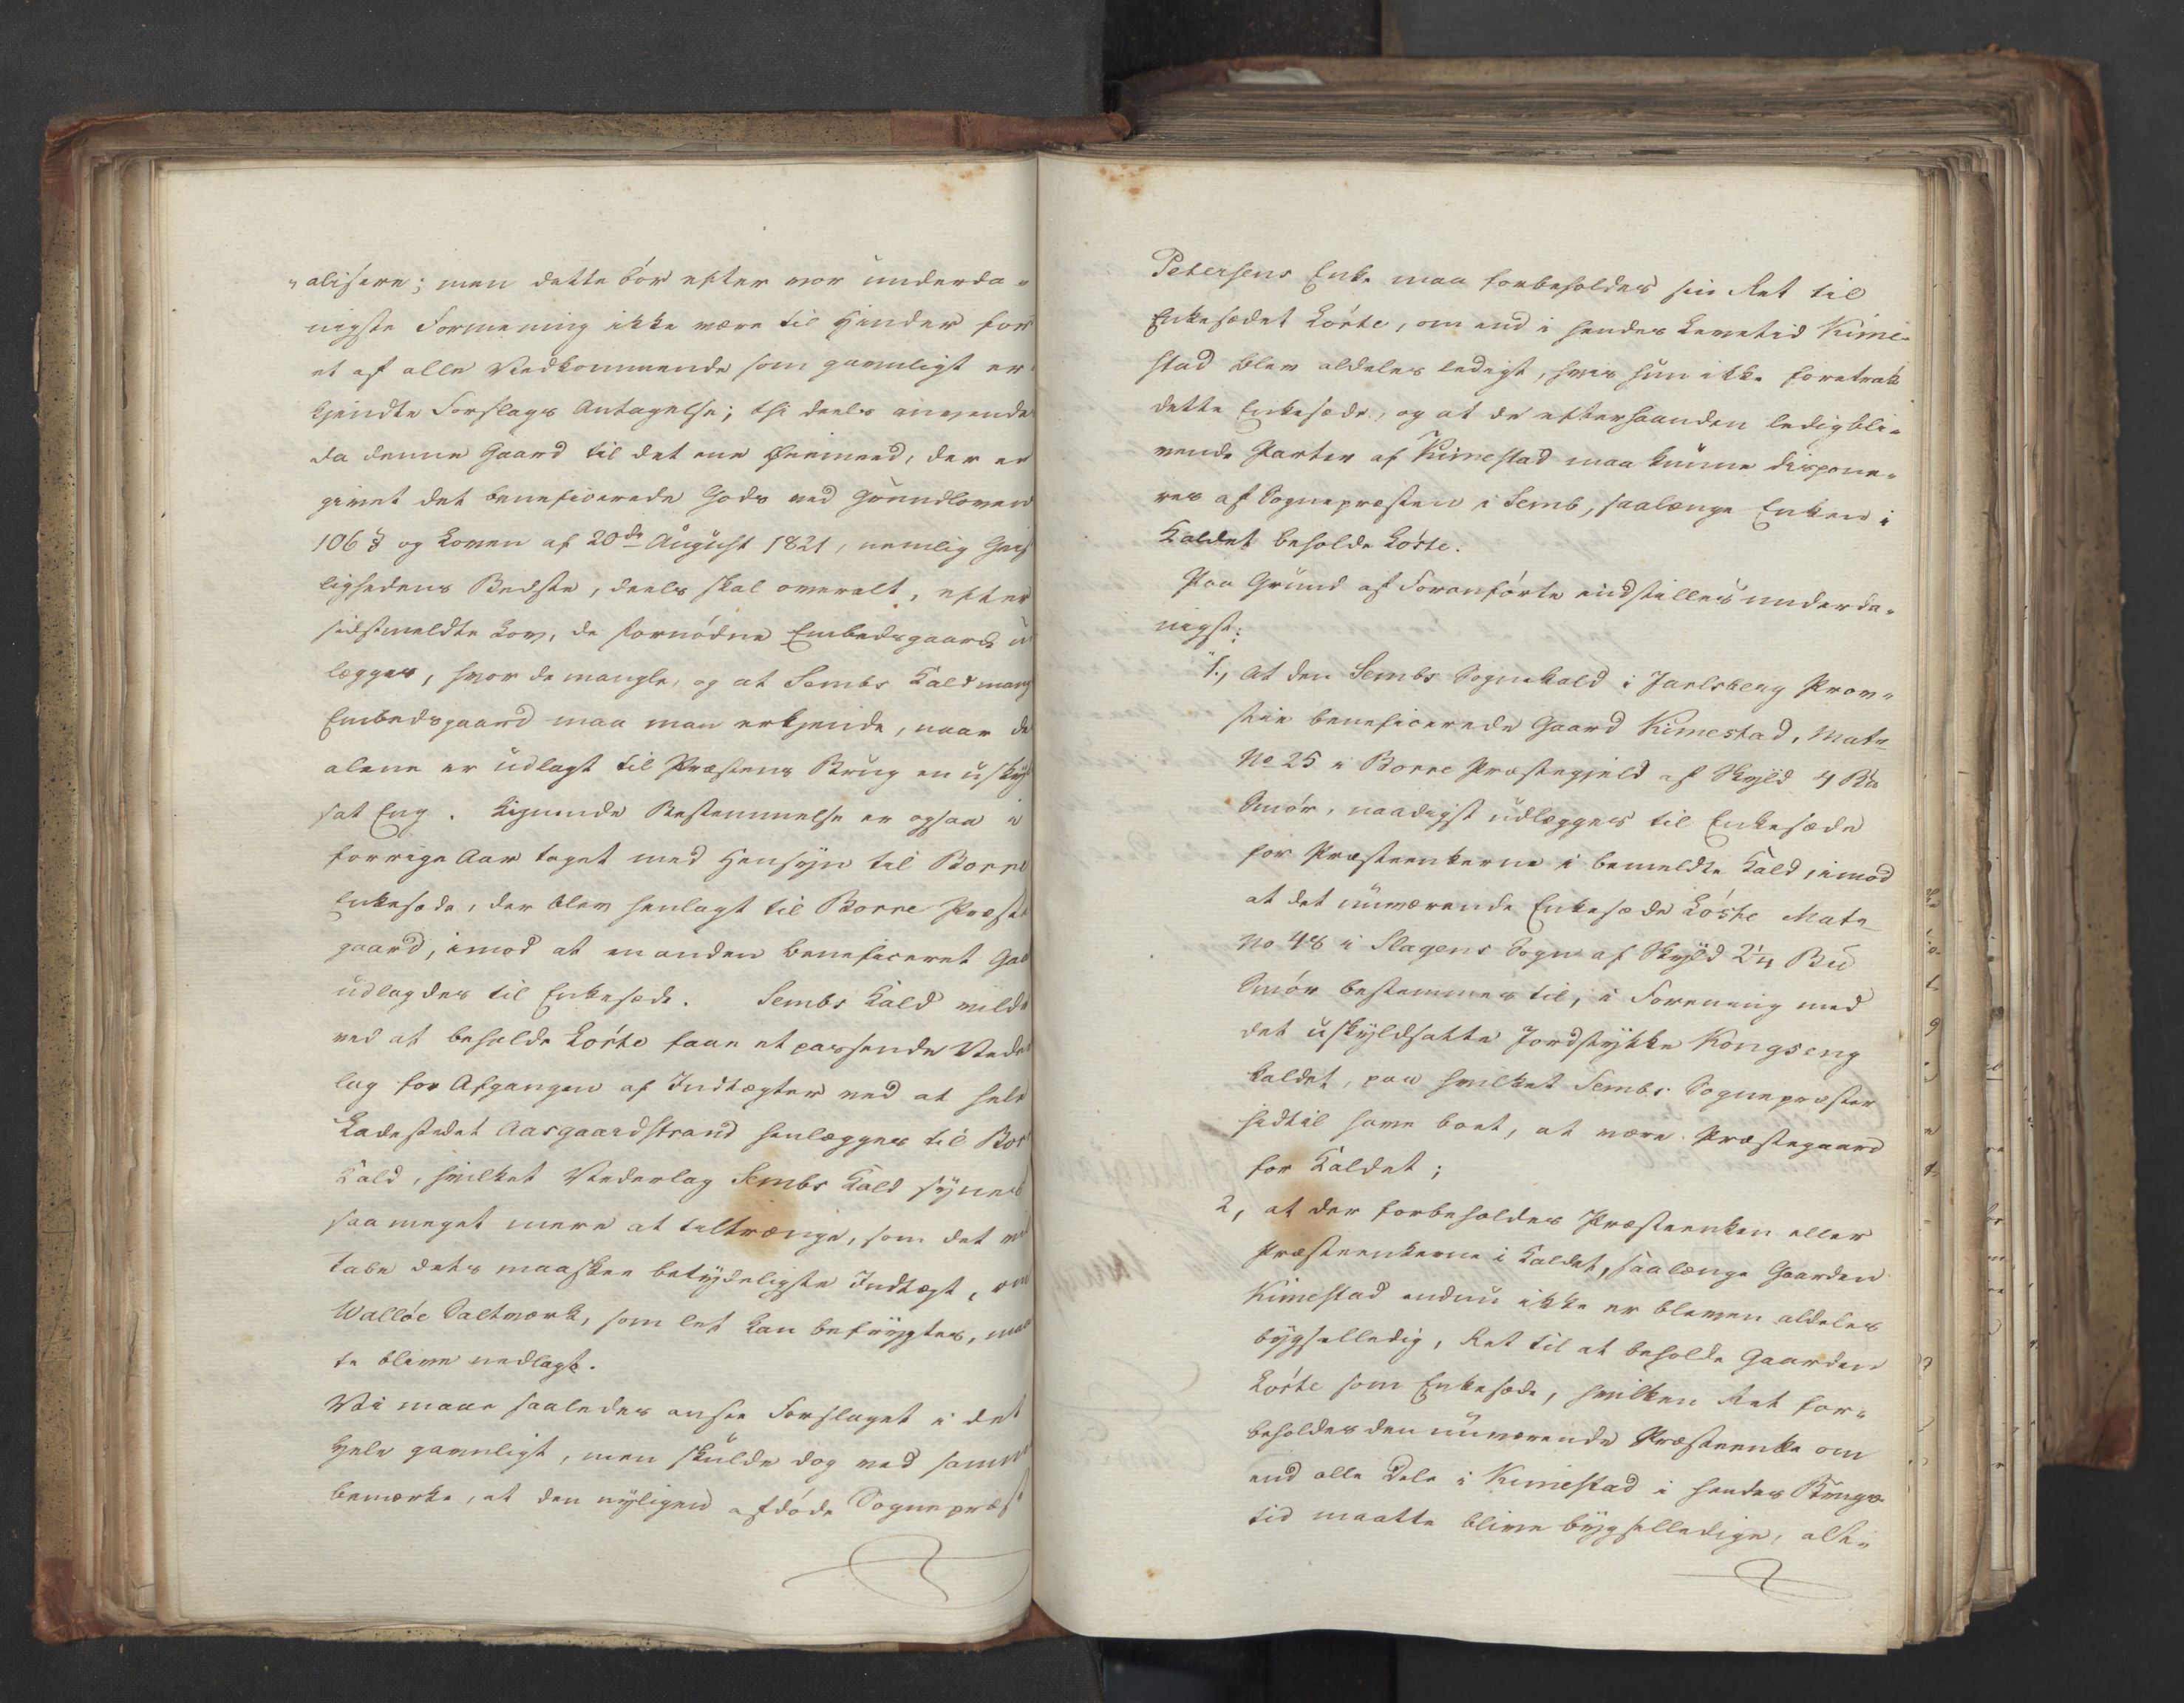 "alisere; men dette bör efter vor underda-
nigste Formening ikke være til Hinder for
et af alle Vedkommende som gavnligt er-
kjendte Forslags Antagelse; thi deels anvendes
da denne Gaard til det ene Øiemeed, der er
givet det beneficerede Gods ved Grundlovens
106 § og Loven af 20de August 1821, nemlig Geis
lighedens Bedste, deels skal overalt, efter
sidstmeldte Lov, de fornödne Embedsgaarde u
lægges, hvor de mangle, og at Sembs Kald mang
Embedsgaard maa man erkjende, naar de
alene er udlagt til Præstens Brug en uskyl
sat Eng. Lignende Bestemmelse er ogsaa i
forrige Aar taget med Hensyn til Borre
Enkesæde, der blev henlagt til Borre Præste
gaard, imod at en anden beneficeret Gaa
udlagdes til Enkesæde. Sembs Kald vilde
ved at beholde Lörte faae et passende Veder
lag for Afgangen af Indtægter ved at hele
Ladestedet Aasgaardstrand henlægges til Bor
Kald, hvilket Vederlag Sembs Kald synes
saa meget mere at tiltrænge, som det vil
tabe dets maaskee betydeligste Indtægt, om
Wallöe Saltværk, som let kan befrygtes, maa
te blive nedlagt.
Vi maae saaledes ansee Forslaget i det
Hele gavnligt, men skulde dog ved samme
bemærke, at den nyligen afdöde Sognepræst
Petersens Enke maa forbeholdes sin Ret til
Enkesædet Lörte, om end i hendes Levetid Kime-
stad blev aldeles ledigt, hvis hun ikke foretrak
dette Enkesæde, og at de efterhaanden ledigbli-
vende Parter af Kimestad maa kunne dispone-
res af Sognepræsten i Semb, saalænge Enken i
Kaldet beholde Lörte.
Paa Grund af Foranförte indstilles underda-
nigst:
1., at den Sembs Sognekald i Jarlsberg Prov-
stie beneficerede Gaard Kimestad, Mat
No 25 i Borre Præstegjeld af Skyld 4 Bu
Smör, naadigst udlægges til Enkesæde
for Præsteenkerne i bemeldte Kald, imod
at det nuværende Enkesæde Lörte Mat
No 48 i Slagens Sogn af Skyld 2¼ Bu
Smör bestemmes til, i Forening med
det uskyldsatte Jordstykke Kongseng
kaldet, paa hvilket Sembs Sognepræster
hidtil have boet, at være Præstegaard
for Kaldet;
2, at der forbeholdes Præsteenken eller
Præsteenkerne i Kaldet, saalænge Gaarden
Kimestad endnu ikke er bleven aldeles
bygselledig, Ret til at beholde Gaarden
Lörte som Enkesæde, hvilken Ret for-
beholdes den nuværende Præsteenke om
end alle Dele i Kimestad i hendes Brugs-
tid maatte blive bygselledige, alt-